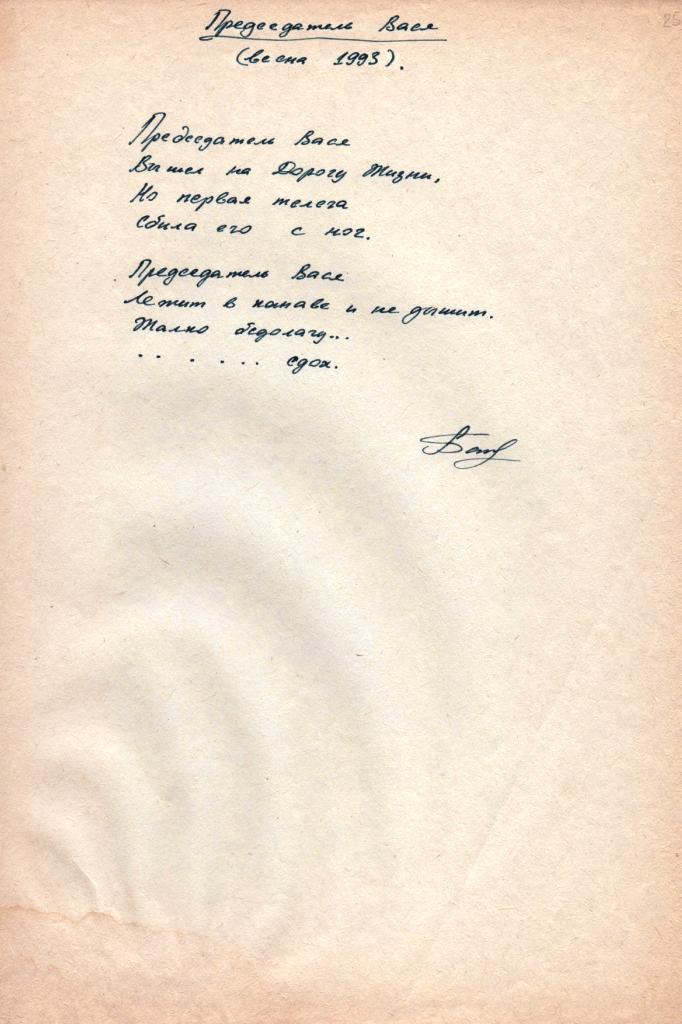 Председатель Вася
25
(весна 1993).
Председатель Вася
Вышел на Дорогу Жизни,
Но первая телега
Сбила его с ног.
Председатель Вася
Лежит в канаве и не дышит.
Жалко бедолагу...
. . . . . . . сдох.